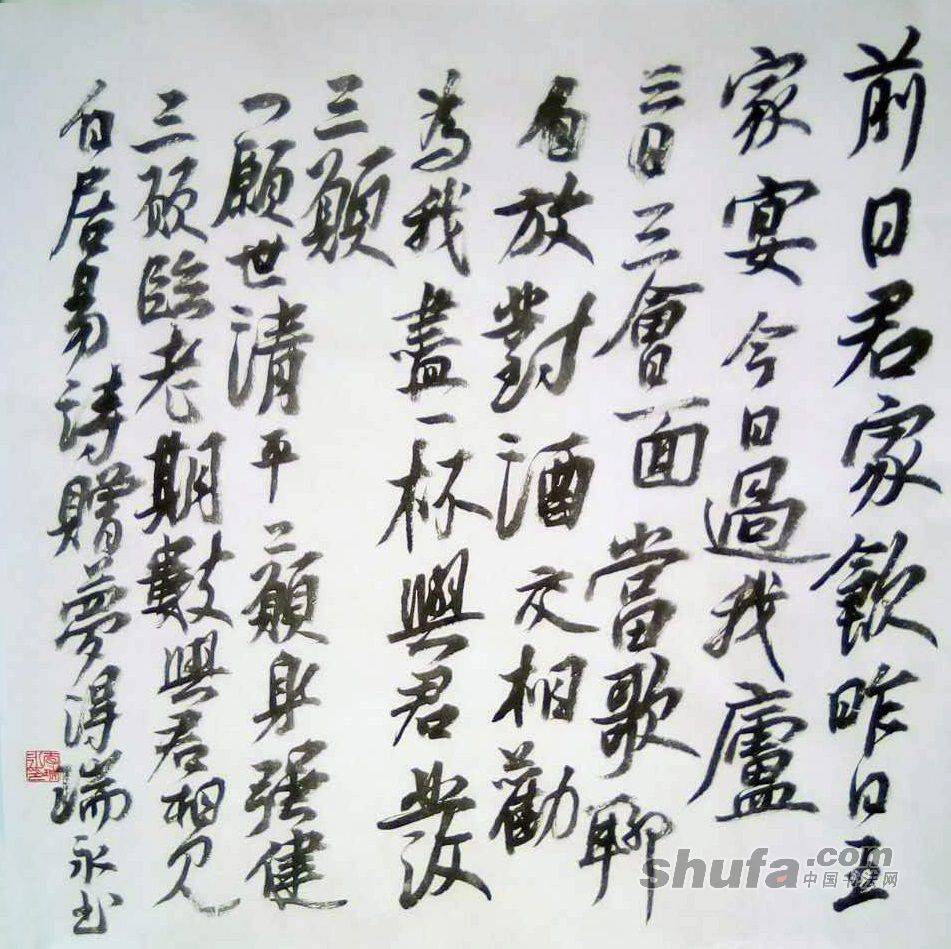 前日君家飲昨日王
家宴今日過我廬
三日三會面當歌聊
自放對酒交相勸
為我盡一杯與君發
三願
一願世清平二願身强健
三願臨老期數與君相見
白居易詩贈夢得瑞永书
shufa.com
中国书法网